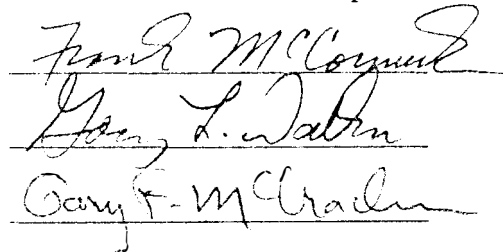 Frank McCormick
Gary L. Walters
Gary F. McCracken